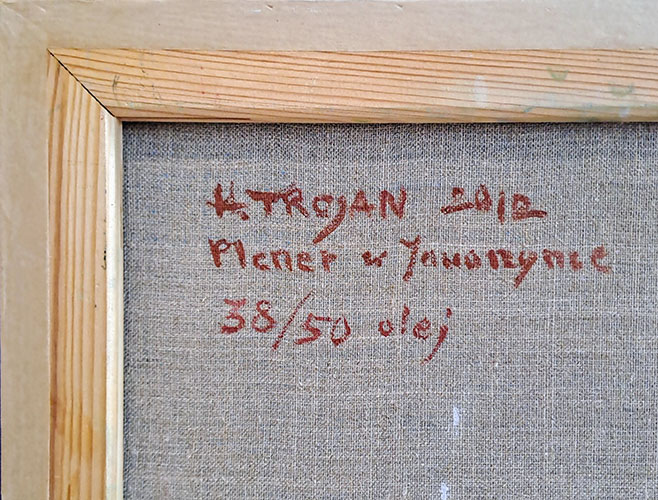 K.TROJAN 2012
Plener w Jaworzynie
38/50 olej